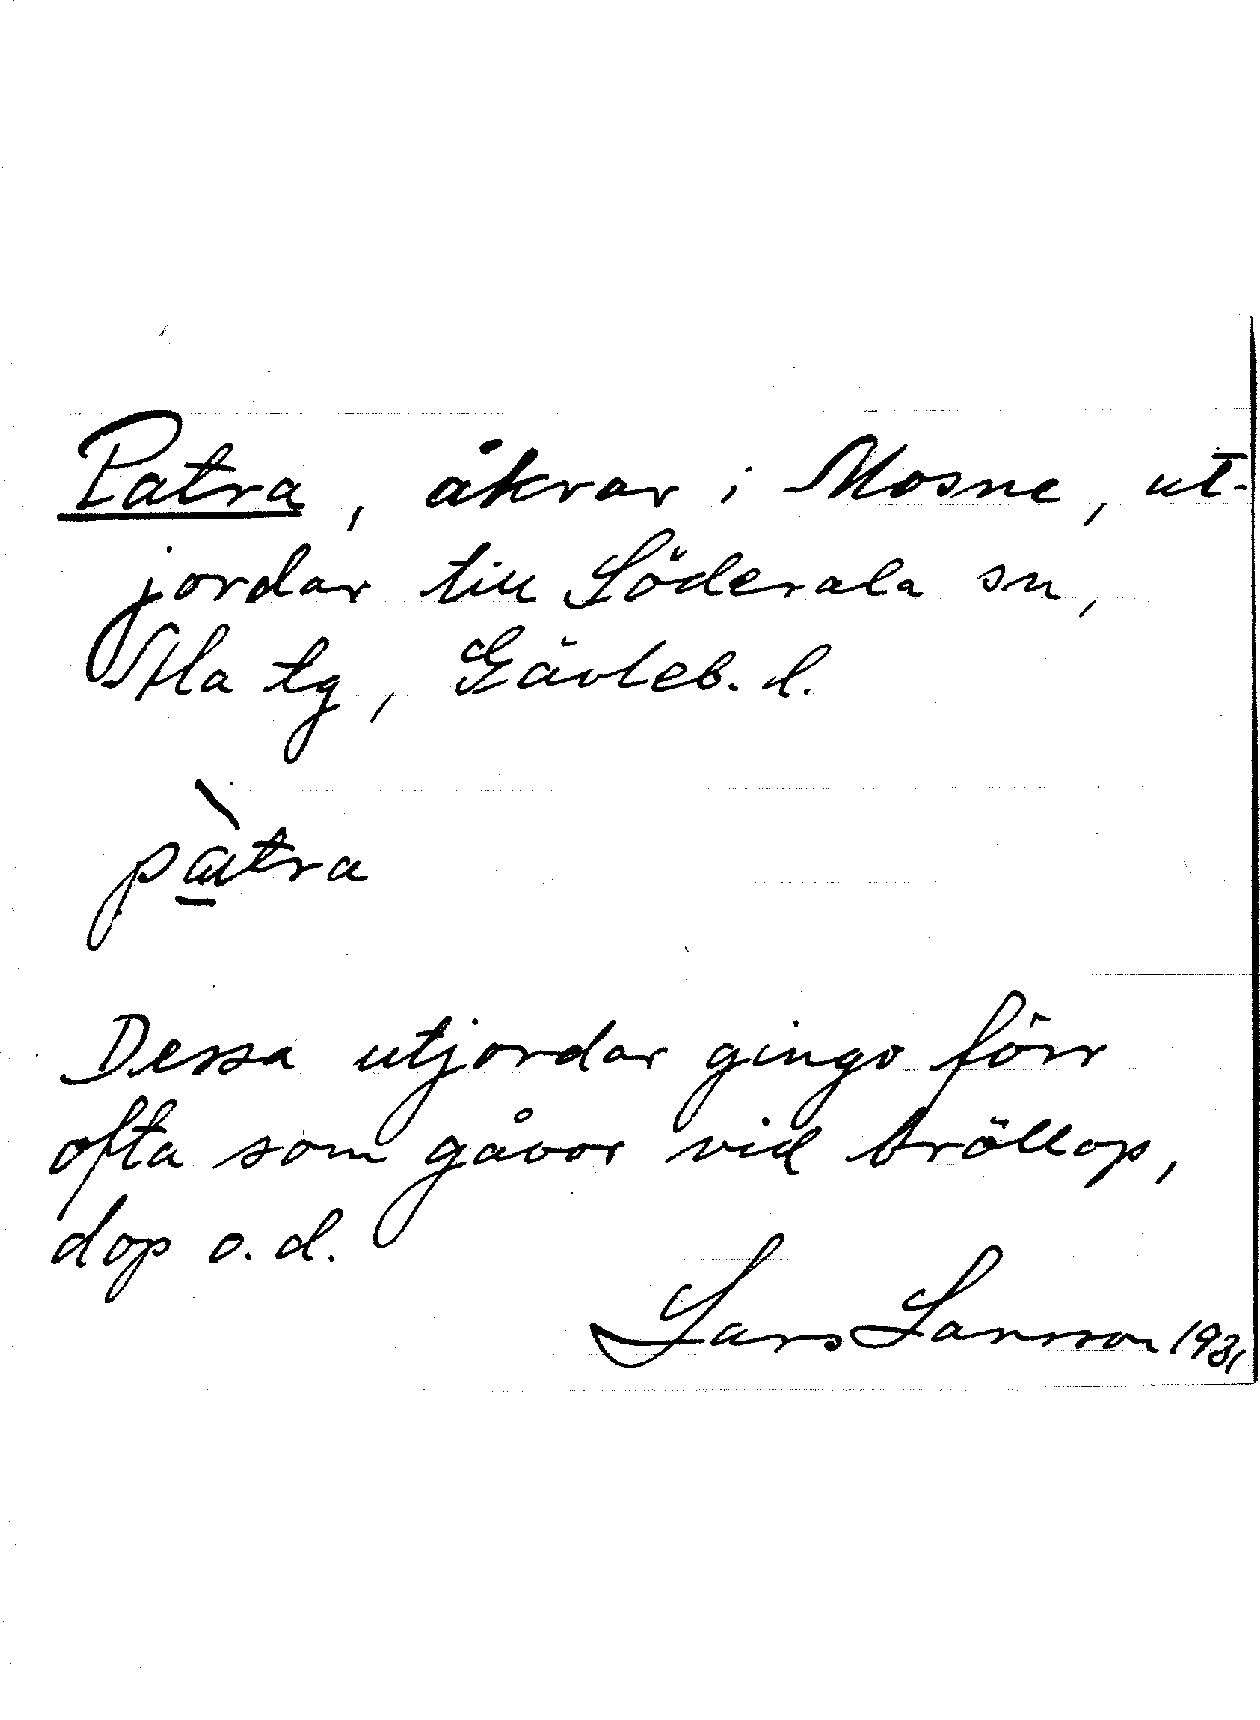 Patra, åkrar i Mosne, ut-
jordar till Söderala sn,
Ala tg, Gävleb. l.
pàtra
Dessa utjordar gingo förr
ofta som gåvor vid bröllop,
dop o. d.
Lars Larsson 1931